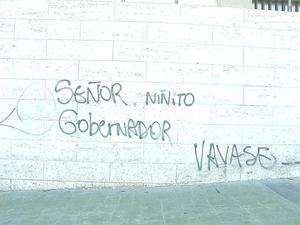 SEÑOR. NIÑITO
GObERNADOR
VAVASE